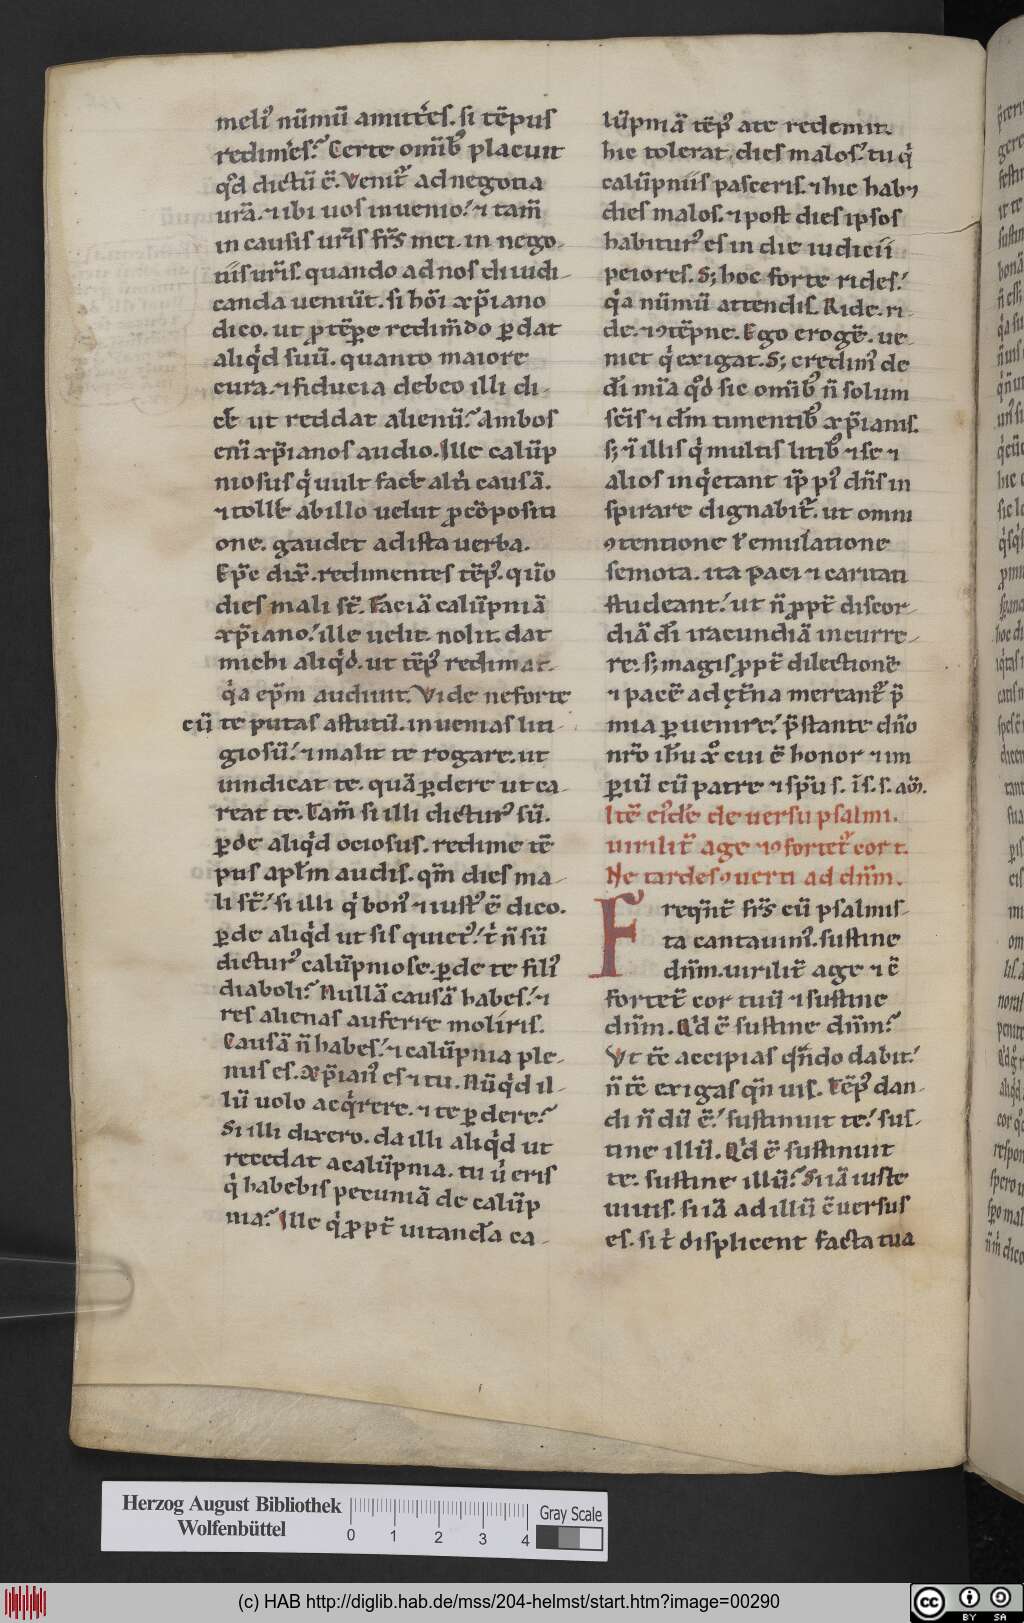 meli⁹ nūmū amitt͛es. si tēp͛us
redim͛es? Certe omīb⁹ placuit
qd̓ dictū ē. Venit᷑ ad negotia
ur̄a. ⁊ ibi uos inuenio. ⁊ tam̄
in causis ur̄is fr̄s mei. in nego
tiis ur̄is. quando ad nos diiudi-
canda ueniūt. si hōi xp̄iano
dico. ut p̱ tēpe redim̄do ꝑdat
aliqd̓ suū. quanto maiore
cura. ⁊ fiducia debeo illi di-
c͛e ut reddat alienū? Ambos
eni̅ xp̄ianos audio. Ille calūp
niosus q̓ uult fac͛e alt͛i causā.
⁊ toll͛e ab illo uelut ꝓ cōpositi
one. gaudet ad ista uerba.
Ep̄c dix̄. redimentes tēp⁹. qn̄o
dies mali st̄. Faciā calūpniā
xp̄iano. ille uelit nolit. dat
michi aliqd̓. ut tēp⁹ redimat.
q̓a ep̄m audiuit. Vide ne forte
cū te putas astutū. inuenias liti
giosū. ⁊ malit te rogare. ut
uindicat te. quā ꝑdere ut ca-
reat te. Tam̄ si illi dictur⁹ sū.
ꝑde aliqd̓ ociosus. redime tē
pus apl̄m audis. qm̄ dies ma-
li st̄. si illi q̓ bon⁹ ⁊ iust⁹ ē dico.
ꝑde aliqd̓ ut sis quiet⁹. t̓ n̄ sū
dictur⁹ calūpniose. ꝑde te fili⁹
diaboli? Nullā causā habes. ⁊
res alienas auferre moliris.
Causā n̄ habes. ⁊ calūpnia ple-
nus es. Xp̄ian⁹ es ⁊ tu. Nūqd̓ il-
lū uolo acq̓rere. ⁊ te ꝑdere?
Si illi dixero. da illi aliqd̓ ut
recedat a calūpnia. tu u̓ eris
q̓ habebis pecuniā de calūp
nia? Ille q̓ ꝓpt̄ uitand̄a ca-
lūpniā tēp⁹ a te redemit.
hic tolerat dies malos. tu q̓
calūpniis pasceris. ⁊ hic habꝫ
dies malos. ⁊ post dies ipsos
habitur⁹ es in die iudicii
peiores. S; hoc forte rides.
q̓a nūmū attendis. Ride. ri-
de. ⁊ ꝯtēpne. Ego erogē. ue-
niet q̓ exigat. S; credim⁹ de
dī mīa qd̓ sic omīb⁹ n̄ solum
sc̄is ⁊ dm̄ timentib⁹ xp̄ianis.
s; ⁊ illis q̓ multis litib⁹ ⁊ se ⁊
alios inq̓etant ip̄ pi⁹ dn̄s in
spirare dignabit᷑. ut omni
ꝯtentione ł emulatione
semota. ita paci ⁊ caritati
studeant. ut n̄ ꝓpt̄ discor-
diā dī iracundiā incurre-
re. s; magis ꝓpt̄ dilectionē
⁊ pacē ad ęt̄na mereant᷑ p̄
mia ꝑuenire. p̄stante dn̄o
nr̄o ih̄u xp̊ cui ē honor ⁊ im
ꝑiū cū patre ⁊ sp̄u s. ī s. s. am̄.
Itē ei⁹dē de uersu psalmi.
uirilit̄ age ⁊ ꝯfortet᷑ cor t.
Ne tardes ꝯuerti ad dn̄m.
Freqn̄t̄ fr̄s cū psalmis-
ta cantauim⁹. sustine
dn̄m. uirilit̄ age ⁊ ꝯ̄
fortet̄ cor tuū ⁊ sustine
dn̄m. Qd̓ ē sustine dn̄m?
Vt tē accipias qn̄do dabit.
n̄ tē exigas qn̄ uis. Tēp⁹ dan-
di n̄ dū ē. sustinuit te. sus-
tine illū. Qd̓ ē sustinuit
te. sustine illū? Si iā iuste
uiuis. si iā ad illū cōuersus
es. si t̓ displicent facta tua
Herzog August Bibliothek
Wolfenbüttel
0 1 2 3 4
Gray Scale
(c) HAB http://diglib.hab.de/mss/204-helmst/start.htm?image=00290
cc BY SA